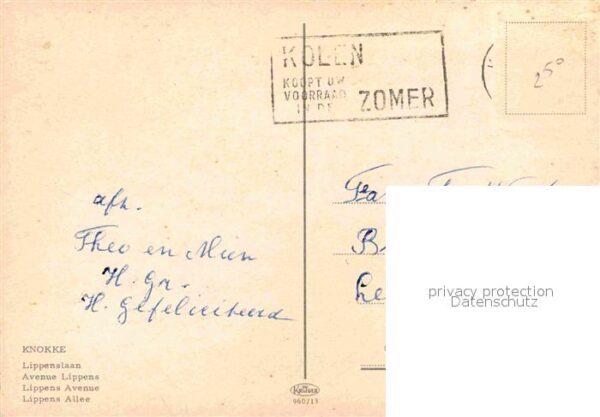 KOLEN
KOOPT UW
VOORRAAD
IN DE ZOMER
25⁰
afz.
Theo en Mien
H. Gr.
H. Gefeliciteerd
Fa
B
Le
privacy protection
Datenschutz
KNOKKE
Lippenslaan
Avenue Lippens
Lippens Avenue
Lippens Allee
KRÜGER
960/13